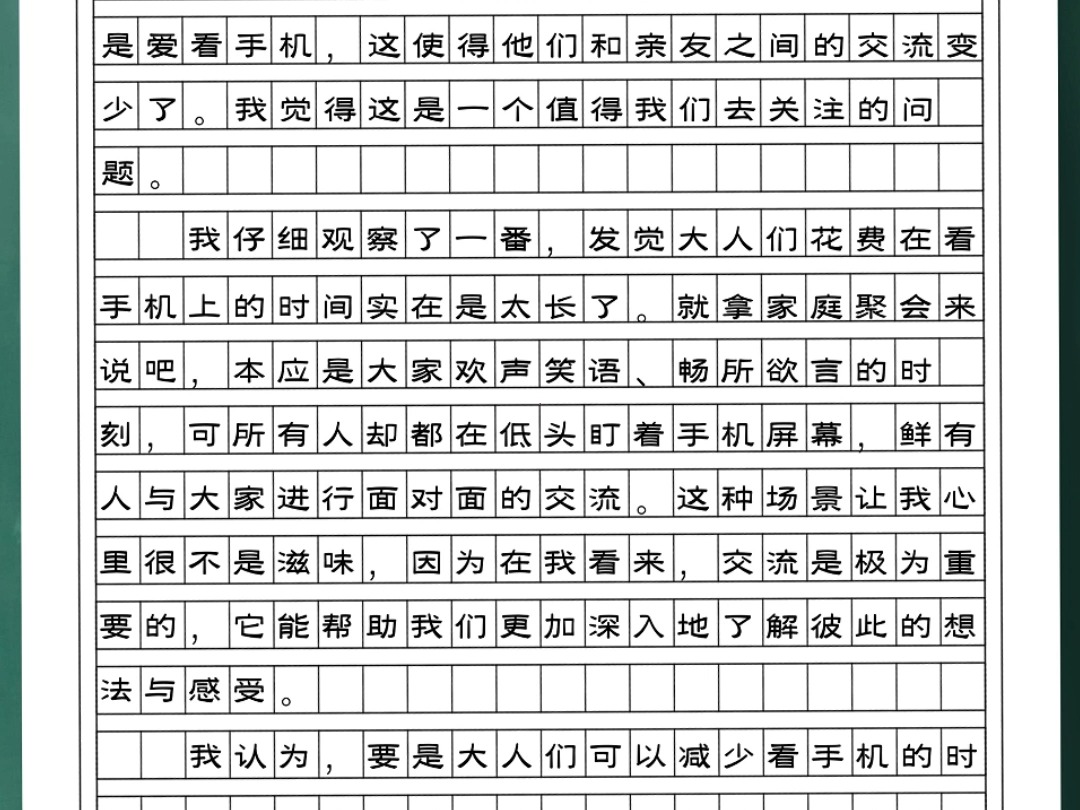 是爱看手机，这使得他们和亲友之间的交流变
少了。我觉得这是一个值得我们去关注的问
题。
我仔细观察了一番，发觉大人们花费在看
手机上的时间实在是太长了。就拿家庭聚会来
说吧，本应是大家欢声笑语、畅所欲言的时
刻，可所有人却都在低头盯着手机屏幕，鲜有
人与大家进行面对面的交流。这种场景让我心
里很不是滋味，因为在我看来，交流是极为重
要的，它能帮助我们更加深入地了解彼此的想
法与感受。
我认为，要是大人们可以减少看手机的时